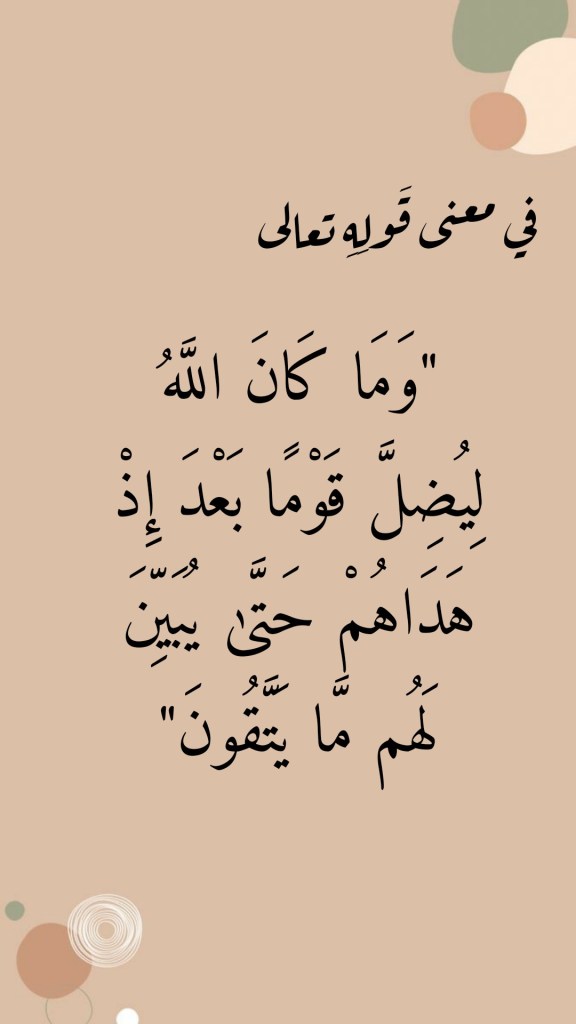 في معنى قَولِهِ تعالى
"وَمَا كَانَ اللَّهُ
لِيُضِلَّ قَوْمًا بَعْدَ إِذْ
هَدَاهُمْ حَتَّىٰ يُبَيِّنَ
لَهُم مَّا يَتَّقُونَ"